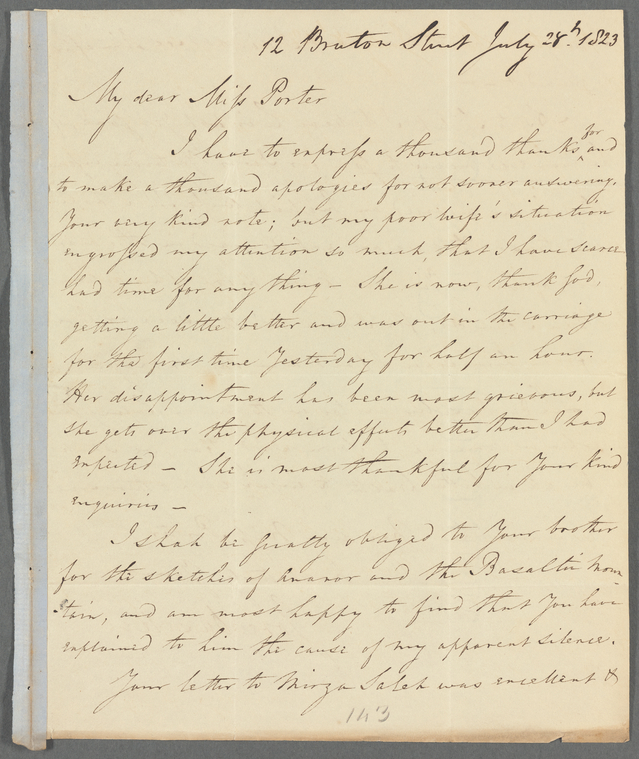 12 Bruton Street July 28.th 1823
My dear Miss Porter
I have to express a thousand thanks for and
to make a thousand apologies for not sooner answering,
Your very kind note; but my poor wife's situation
engrossed my attention so much, that I have scarce
had time for any thing — She is now, thank God,
getting a little better and was out in the carriage
for the first time Yesterday for half an hour.
Her disappointment has been most grievous, but
she gets over the physical effects better than I had
expected — She is most thankful for Your kind
enquiries —
I shall be greatly obliged to Your brother
for the sketches of and the Basaltic Moun-
tain, and am most happy to find that You have
explained to him the cause of my apparent silence.
Your letter to Mirza Saleh was excellent &
143